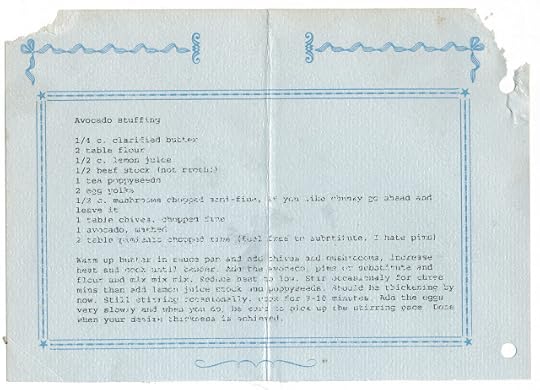 Avocado Stuffing
1/4 c. clarified butter
2 table flour
1/2 c. lemon juice
1/2 beef stock (not broth!)
1 tea poppyseeds
2 egg yolks
1/2 c. mushrooms chopped semi-fine, if you like chunky go ahead and
leave it
1 table chives, chopped fine
1 avocado, mashed
2 table chopped fine (feel free to substitute, I hate pims)
Warm up butter in sauce pan and add chives and mushrooms, increase
heat and cook until tender. Add the avocado, pims or substitute and
flour and mix mix mix. Reduce heat to low. Stir occasionally for three
mins then add lemon juice stock and poppyseeds. Should be thickening by
now. Still stirring occasionally, cook for minutes. Add the eggs
very slowly and when you do, be sure to pick up the stirring pace. Done
when your desire thickness is achieved.